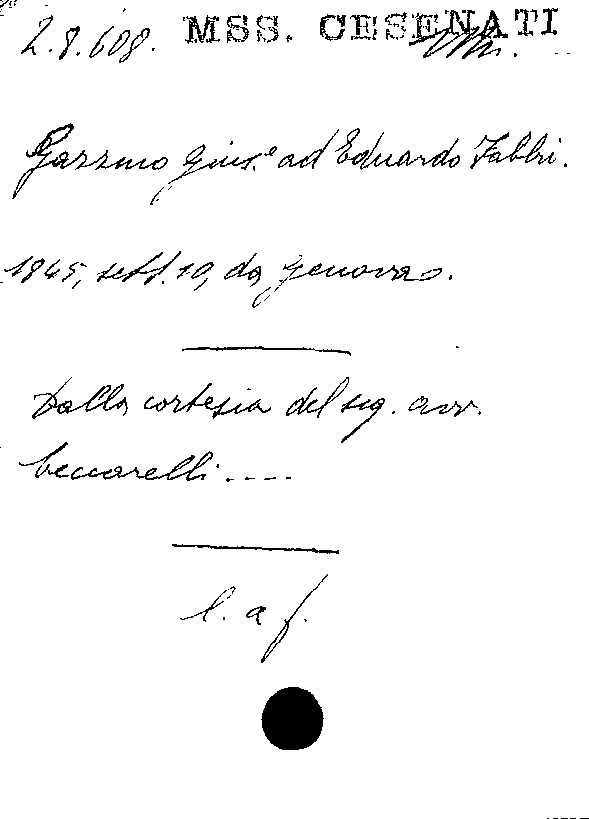 2.8.608. MSS. CESENATI
Gazzino Gius.e ad Eduardo Fabbri.
1845, sett. 10, da Genova.
Dalla cortesia del sig. avv.
Beccarelli ....
l. a f.